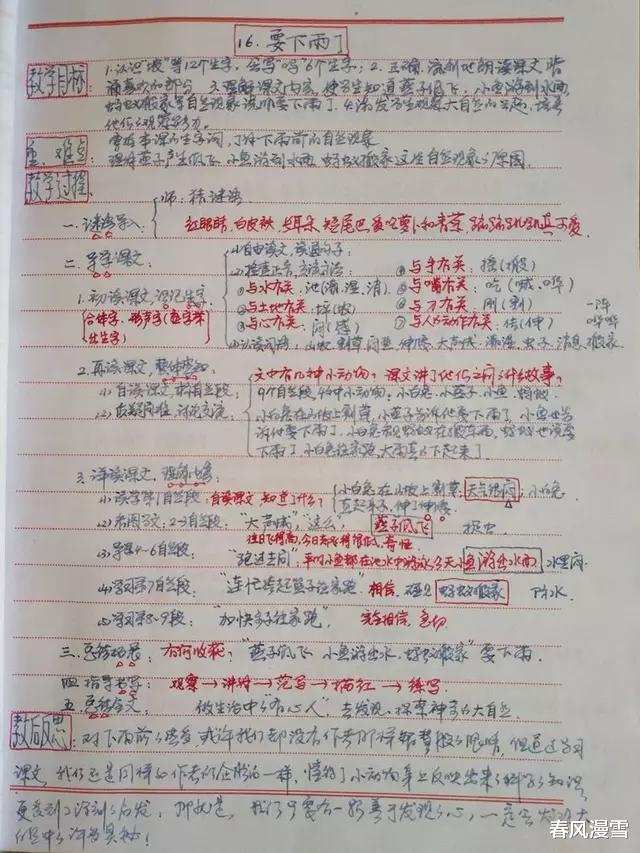 16. 要下雨了
教学目标
1. 认识"坡"等12个生字,会写"吗"6个生字;2. 正确、流利地朗读课文,背
诵喜欢的部分。3. 理解课文内容,使学生知道燕子低飞、小鱼游到水面、
蚂蚁搬家等自然现象说明要下雨了。4. 激发学生观察大自然的兴趣,培养
他们的观察能力。
重、难点
掌握本课的生字词,了解下雨前的自然现象
理解燕子产生低飞、小鱼游到水面、蚂蚁搬家这些自然现象的原因。
教学过程
师:猜谜语
一、谜语导入
红眼睛,白皮袄,长耳朵,短尾巴,爱吃萝卜和青草,蹦蹦跳跳真可爱。
二、导学课文:
1. 初读课文,识记生字
合体字、形声字(熟字带出生字)
(1)自由读文,读通句子;
(2)检查正音,交流方法:
①与水有关:池(潮、湿、消)
②与土地有关:坡
③与心有关:闷
⑤与手有关:(搬)
⑥与嘴有关:吃(喊、哗)
⑦与刀有关:刚(割)
⑦与人的动作有关:(伸)
一阵
哗哗
山坡、割草、闷热、伸腰、大声喊、潮湿、虫子、消息、搬家
2. 再读课文,整体感知
文中有几种小动物?课文讲了他们之间的什么故事?
(1)自读课文,标自然段:
9个自然段,4种小动物:小白兔、小燕子、小鱼、蚂蚁
(2)质疑问难,讨论交流:
小白兔在山坡上割草,小燕子告诉他要下雨了,小鱼也告
诉他要下雨了,小白兔看见蚂蚁在搬东西,蚂蚁也说要
下雨了,小白兔往家跑,大雨真的下起来了
3. 详读课文,理解内容
(1)读学第1自然段:自读课文,知道了什么?
小白兔在山坡上割草,天气很闷,小白兔
直起身子,伸了伸腰
(2)看图学文:2-3自然段:"大声喊","这么", 燕子低飞 捉虫
往日飞得高,今日飞得很低,奇怪
(3)导学4-6自然段: "跑过去问", 平时小鱼都在池水中游泳,今天小鱼游出水面 水里闷
(4)学习第7自然段: "连忙挎起篮子往家跑" 相信, 碰见 蚂蚁搬家 下雨
(5)学习第8-9段: "加快步子往家跑", 完全相信,急切
三、总结拓展:有何收获?"燕子低飞、小鱼游出水、蚂蚁搬家" 要下雨.
四、指导书写: 观察→讲解→范写→描红→练写
五、总结全文: 做生活中的"有心人",去发现、探索神奇的大自然.
教后反思:
对下雨前的景象,或许我们都没有作者那样锐敏的眼睛,但通过学习
课文,我们还是同样和作者
懂得了小动物身上反映出来的科学知识
更受到了深刻的启发,那就是,我们只要有一颗善于发现的心,一定会发现大
自然中的许多奥秘!
春风漫雪